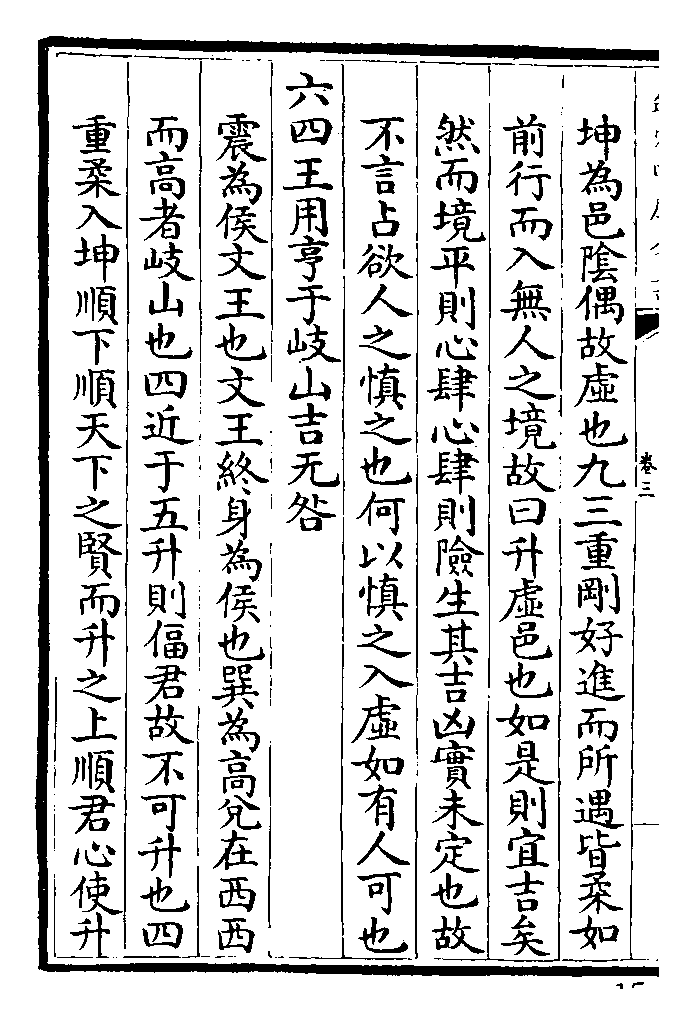 坤為邑陰偶故虛也九三重剛好進而所遇皆柔如
前行而入無人之境故曰升虛邑也如是則宜吉矣
然而境平則心肆心肆則險生其吉凶實未定也故
不言占欲人之慎之也何以慎之入虛如有人可也
六四王用亨于岐山吉无咎
震為侯文王也文王終身為侯也巽為高兌在西西
而高者岐山也四近于五升則偪君故不可升也四
重柔入坤順下順天下之賢而升之上順君心使升
卷三